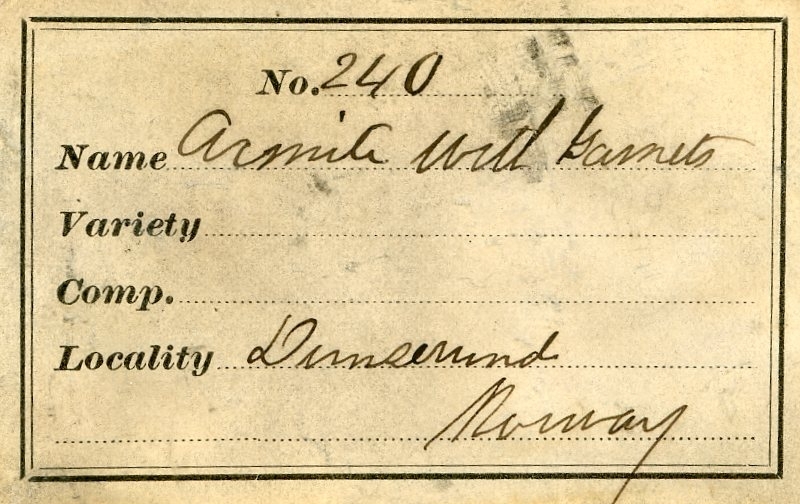 No. 240
Name Acmite with Garnets
Variety
Comp.
Locality Dunserund
Norway